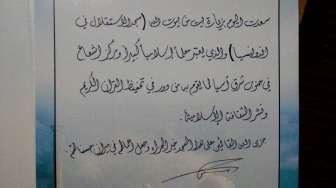 سعدت اليوم بزيارة بيت من بيوت الله (مسجد الاستقلال في
اندونيسيا) والذي يعتبر معلما إسلاميا كبيرا ومركز إشعاع
في جنوب شرق آسيا لما يقوم به من دور في تحفيظ القرآن الكريم
ونشر الثقافة الإسلامية.
جزى الله القائمين على هذا المسجد خير الجزاء وجعل أعمالهم في ميزان حسناتهم.